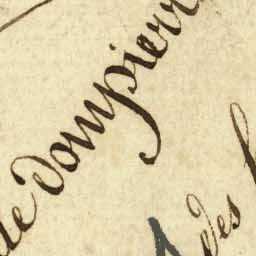 de Dompierr
des